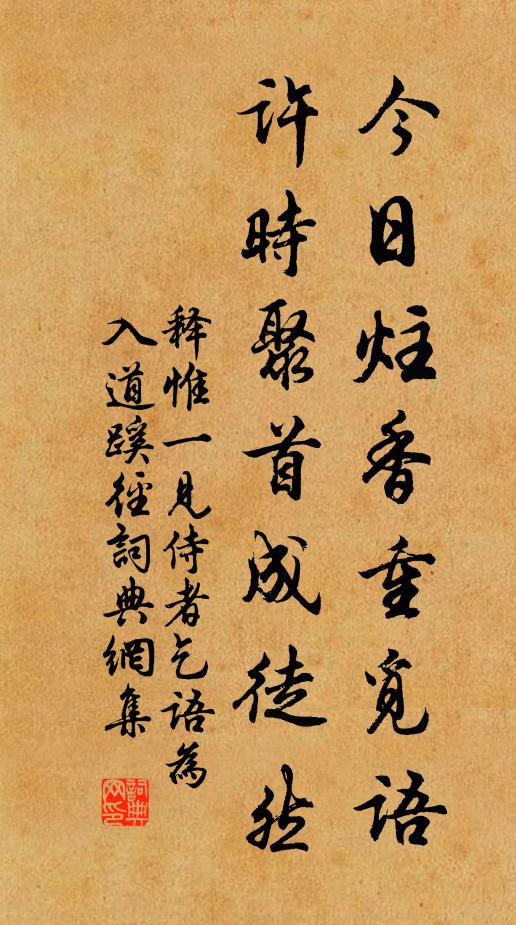 今日炷香重覓語
許時聚首成徒然
释惟一見侍者乞語為
入道蹊徑詞典網集
詞典
网印